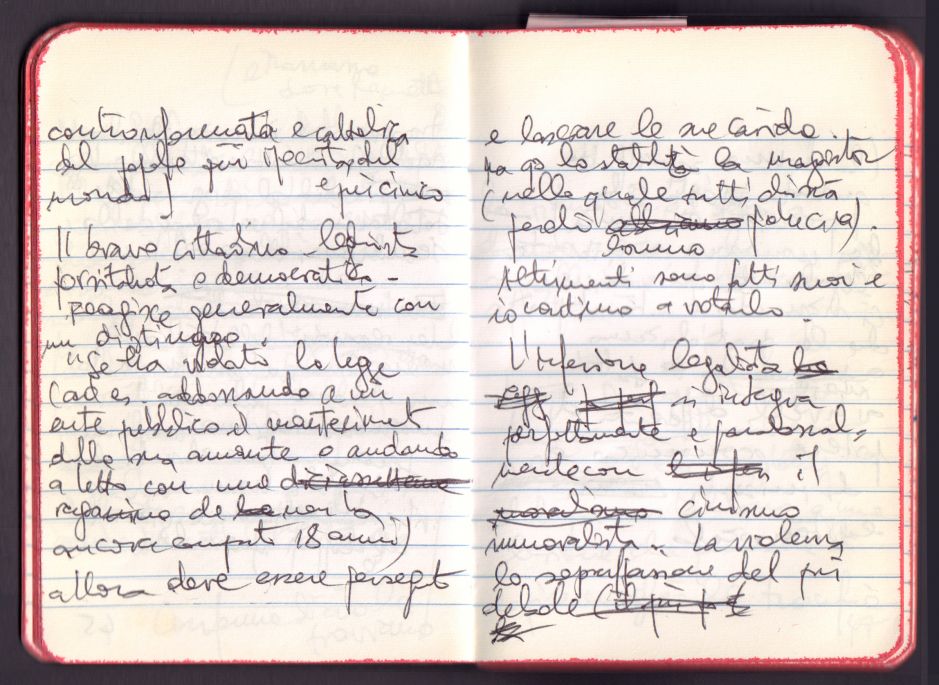 controriformata e cattolica
del popolo più
mondo] e più cinico
Il bravo cittadino legalista
e democratico -
reagisce generalmente con
un distinguo
"Se ha violato la legge
(ad es. addossando a un
ente pubblico il mantenimento
della sua amante o andando
a letto con una diciassettenne
ragazzina che non ha
ancora compiuto 18 anni)
allora deve essere perseguito
e lasciare la sua carica.
Ma ciò lo stabilirà la magistratura
(nella quale tutti
perdio hanno fiducia).
Altrimenti sono fatti suoi e
io continuo a votarlo.
L'infezione legalista
si integra
perfettamente e paradossal-
mente con il
cinismo
immoralista. La violenza
la sopraffazione del più
debole (il più